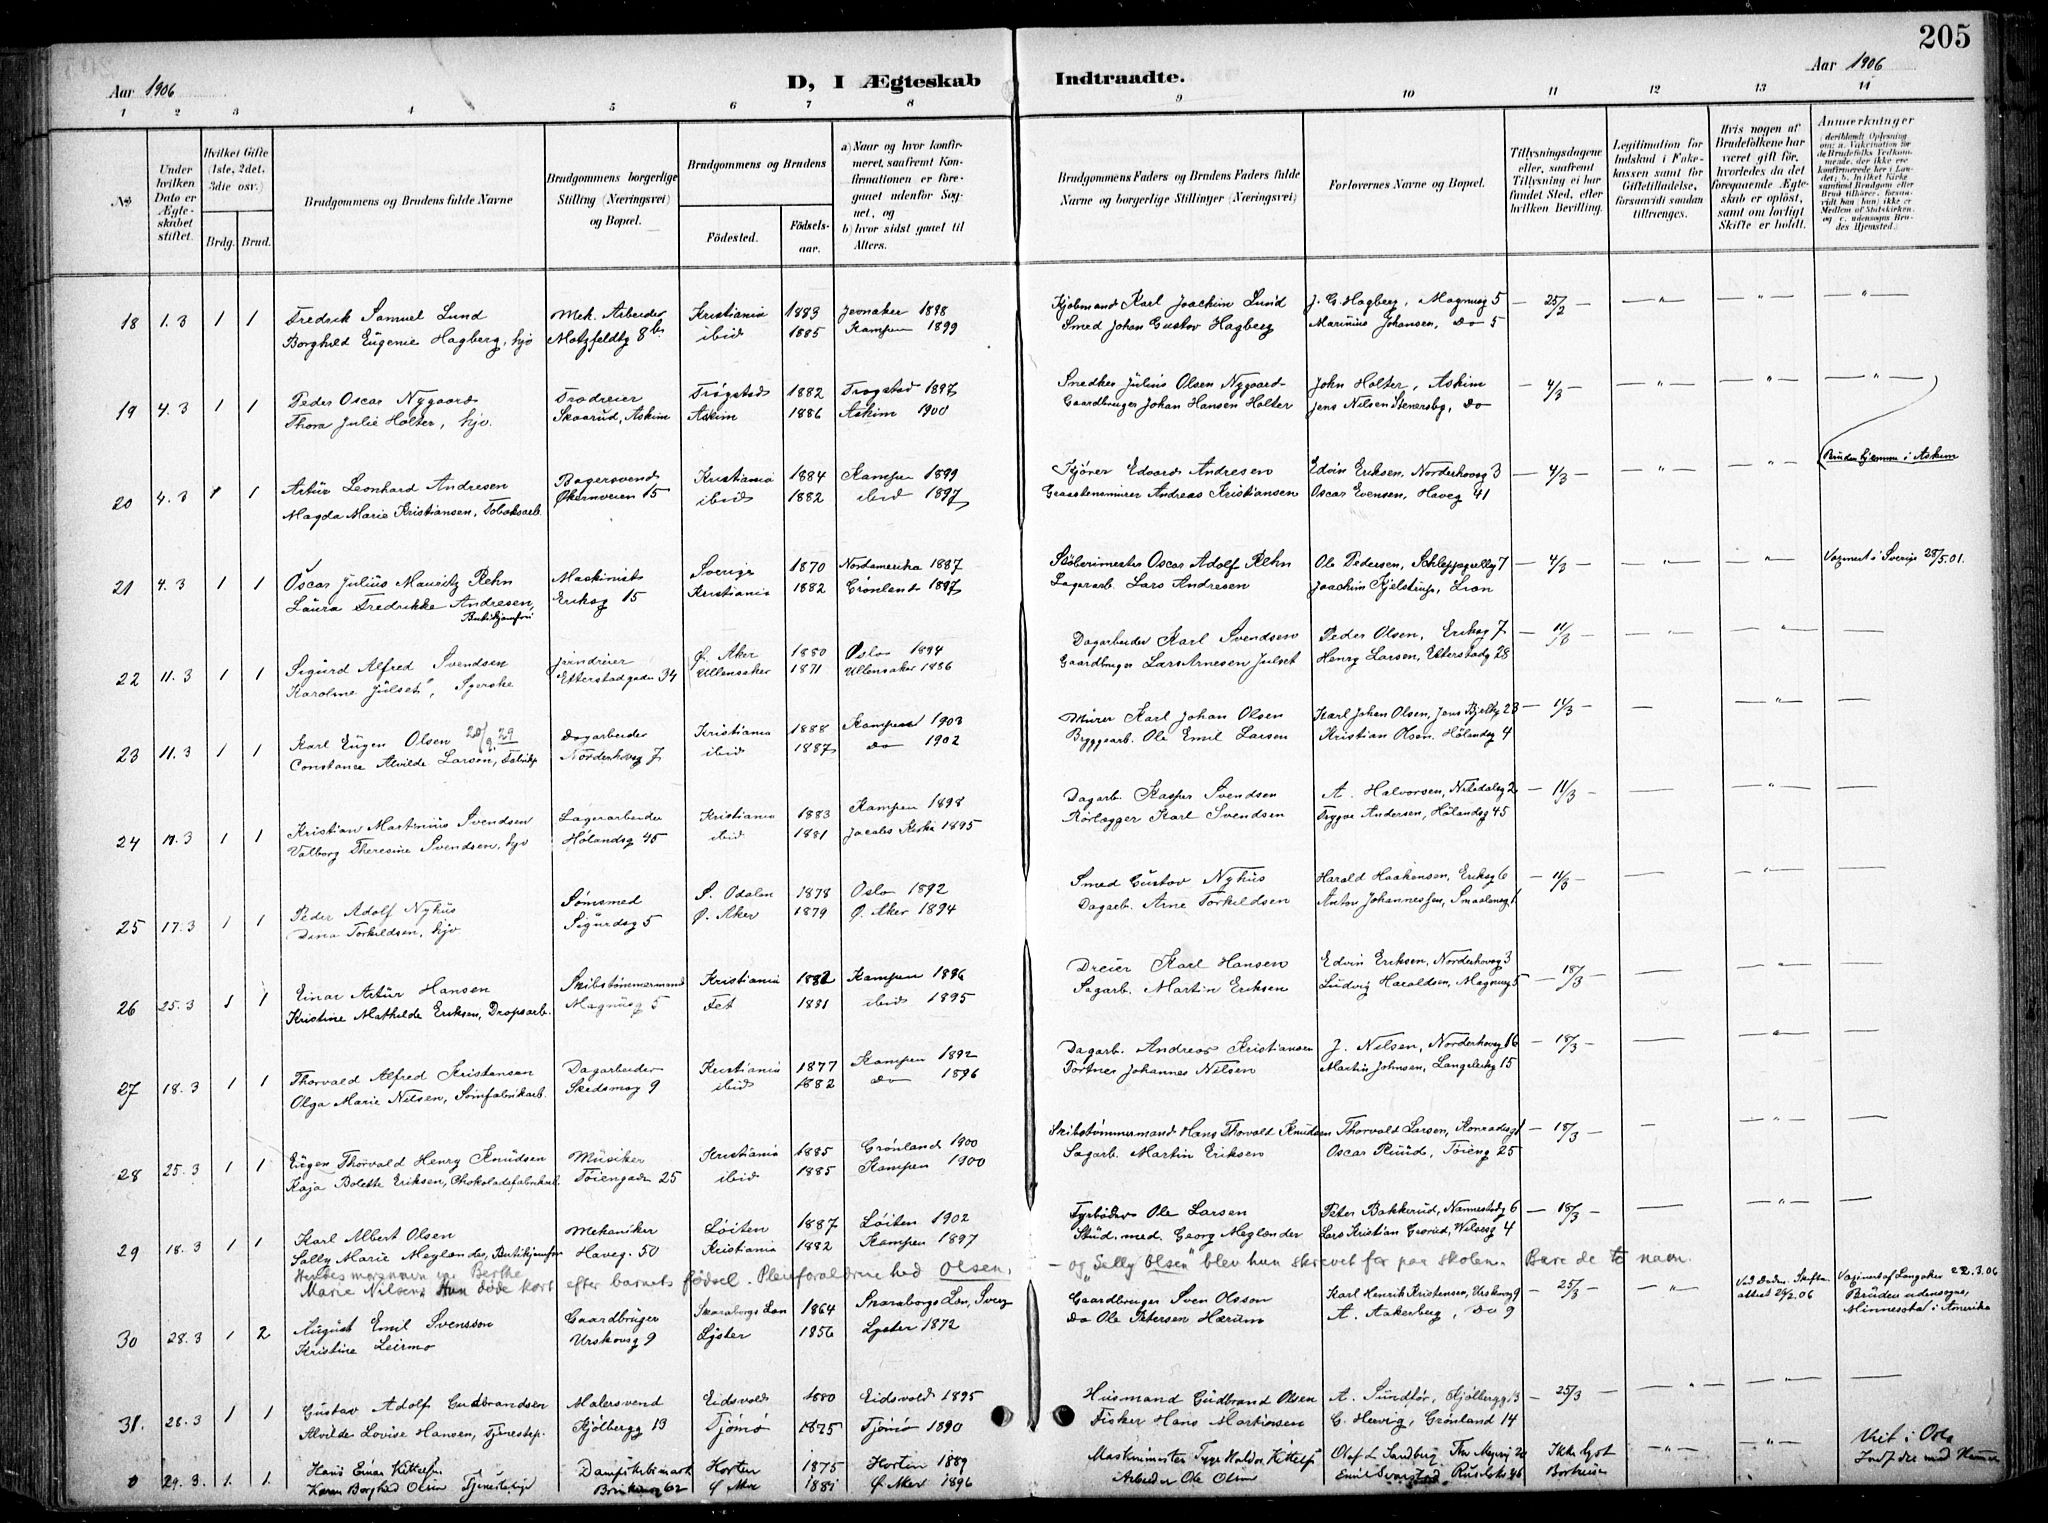 205
Aar 1906
D, I Ægteskab Indtraadte.
Aar 1906
1 2 3 4 5 6 7 8 9 10 11 12 13 14
No
Under hvilken Dato er Ægteskabet stiftet.
Hvilket Gifte (1ste, 2det, 3die osv.)
Brdg. Brud.
Brudgommens og Brudens fulde Navne
Brudgommens borgerlige Stilling (Næringsvei) og Bopæl.
Brudgommens og Brudens
Fødested. Fødselsaar.
a) Naar og hvor konfirmeret, saafremt Konfirmationen er foregaaet udenfor Sognet, og
b) hvor sidst gaaet til Alters.
Brudgommens Faders og Brudens Faders fulde Navne og borgerlige Stillinger (Næringsvei)
Forlovernes Navne og Bopæl.
Tillysningsdagene eller, saafremt Tillysning ei har fundet Sted, efter hvilken Bevilling.
Legitimation for Indskud i Enkekassen samt for Giftetilladelse, forsaavidt saadan tiltrænges.
Hvis nogen af Brudefolkene har været gift før, hvorledes da det foregaaende Ægteskab er opløst, samt om lovligt Skifte er holdt.
Anmærkninger
18 1.3 1 1 Fredrik Samuel Lund Mek. Arbeider Kristiania 1883 Jevnaker 1898 Kjøbmand Karl Joachim Lund J. G. Hagberg, Magnusg 5 — 25/2 — " — — " — "
Borghild Eugenie Hagberg, hjv Motzfeldtg 8b ibid 1885 Kampen 1899 Smed Johan Gustav Hagberg Marinius Johansen, Do 5
19 4.3 1 1 Peder Oscar Nygaard Trædreier Trøgstad 1882 Trøgstad 1897 Snedker Julius Olsen Nygaard John Holter, Askim — 4/3 — — " — — " — — " —
Thora Julie Holter, hjv. Skaarud, Askim Askim 1886 Askim 1900 Gaardbruger Johan Hansen Holter Jens Nilsen Stenersby, Do
Bruden hjemme i Askim
20 4.3 1 1 Artur Leonhard Andresen Bagersvend Kristiania 1884 Kampen 1899 Kjører Edvard Andresen Edvin Eriksen, Norderhovsg 3 — 4/3 — — " — — " —
Magda Marie Kristiansen, Tobaksarb. Økernveien 15 ibid 1882 ibid 1897 Graastensmurer Andreas Kristiansen Oscar Evensen, Haveg 41
21 4.3 1 1 Oscar Julius Mauritz Rehn Maskinist Sverige 1870 Nordamerika 1887 Støberimester Oscar Adolf Rehn Ole Pedersen, Schleppegrellsg 7 — 4/3 — — " — — " — Vaxinert i Sverige 28/5.01.
Laura Fredrikke Andresen, Eriksg 15 Kristiania 1882 Grønland 1897 Lagerarb. Lars Andresen Joachim Kjelstrup, Lian
Butikjomfru
22 11.3 1 1 Sigurd Alfred Svendsen Jerndreier Ø. Aker 1880 Oslo 1894 Dagarbeider Karl Svendsen Peder Olsen, Eriksg 7 — 11/3 — — " — — " — —
Karoline Julset, Syerske Etterstadgaden 34 Ullensaker 1871 Ullensaker 1886 Gaardbruger Lars Arnesen Julset Henry Larsen, Etterstadg 28
23 11.3 1 1 Karl Eugen Olsen 20/9.29 Dagarbeider Kristiania 1888 Kampen 1903 Murer Karl Johan Olsen Karl Johan Olsen, Jens Bjelkg 23 — 11/3 — — — " — —
Constance Alvilde Larsen, Fabrikp Norderhovsg 7 ibid 1887 do 1902 Bryggearb. Ole Emil Larsen Kristian Olsen, Hølandsg 4
24 11.3 1 1 Kristian Martinius Svendsen Lagerarbeider Kristiania 1883 Kampen 1898 Dagarb. Kasper Svendsen A. Halvorsen, Nitedalsg 2 — 11/3 — — — " — —
Valborg Theresine Svendsen, hjv Hølandsg 45 ibid 1881 Jacobs Kirke 1895 Rørlægger Karl Svendsen Trygve Andersen, Hølandsg 45
25 17.3 1 1 Peder Adolf Nyhus Sømsmed S. Odalen 1878 Oslo 1892 Smed Gustav Nyhus Harald Haakensen, Eriksg 6 — 11/3 — — — " — —
Dina Torkildsen, hjv Sigurdsg 5 Ø. Aker 1879 Ø. Aker 1894 Dagarb. Arne Torkildsen Anton Johannessen, Smaalensg 1
26 25.3 1 1 Einar Artur Hansen Skibstømmermand Kristiania 1882 Kampen 1896 Dreier Karl Hansen Edvin Eriksen, Norderhovsg 3 — 18/3 — — — " — —
Kristine Mathilde Eriksen, Dropsarb. Magnusg 5 Fet 1881 ibid 1895 Sagarb. Martin Eriksen Ludvig Haraldsen, Magnusg 5
27 18.3 1 1 Thorvald Alfred Kristensen Dagarbeider Kristiania 1877 Kampen 1892 Dagarb. Andreas Kristiansen J. Nilsen, Norderhovsg 16 — 18/3 — — — " — —
Olga Marie Nilsen, Sømfabrikarb. Skedsmog 9 ibid 1882 do 1896 Portner Johannes Nilsen Martin Johnsen, Langeleiksg 15
28 25.3 1 1 Eugen Thorvald Henry Knudsen Musiker Kristiania 1885 Grønland 1900 Skibstømmermand Hans Thorvald Knudsen Thorvald Larsen, Konradsg 1 — 18/3 — — — " — —
Kaja Bolette Eriksen, Chokoladefabrikarb. Tøiengaden 25 ibid 1885 Kampen 1900 Sagarb. Martin Eriksen Oscar Ruud, Tøieng 25
29 18.3 1 1 Karl Albert Olsen Mekaniker Løiten 1887 Løiten 1902 Fyrbøder Ole Larsen Peter Bakkerud, Nannestadg 6 — 18/3 — — — " — —
Sally Marie Meglander, Butikjomfru Haveg. 50 Kristiania 1882 Kampen 1897 Stud. med. Georg Meglander Lars Kristian Grorud, Wilsesg 4
Hendes mor Berthe
Marie Nilsen. Hun døde kort efter barnets fødsel. Pleieforældrene hed Olsen, — og "Selly Olsen" blev hun skrevet for paa skolen. Bare de to navn.
30 28.3 1 2 August Emil Svensson Gaardbruger Skaraborgs Lan 1864 Skaraborgs Lan, Sverg Gaardbruger Sven Olsson Karl Henrik Kristensen, Urskovsg 9 — 25/3 — — Ved Døden. Skifteattest 24/2.06 Vaxinert af Langaker 22.3.06
Kristine Leirmo Urskovsg 9 Lyster 1856 Lyster 1872 Do Ole Petersen Hærum A. Aakerberg, Do 9 Bruden udensogns, Minnesota i Amerika
31. 28.3 1 1 Gustav Adolf Gudbrandsen Malersvend Eidsvold 1880 Eidsvold 1895 Husmand Gudbrand Olsen A. Sundfør, Kjølbergg 13 — 25/3 — — " — — " — —
Alvilde Lovise Hansen, Tjenestep. Kjølbergg 13 Tjømø 1875 Tjømø 1890 Fisker Hans Martinsen G. Hervig, Grønland 14
0 29.3. 1. 1. Hans Einar Kittelsen Horten 1875 Horten 1889 Ikke lyst — " — — " — Viet i Oslo
Karen Borghild Olsen Tjenestepige 62 Ø Aker 1881 Ø Aker 1896 Arbeider Ole Olsen